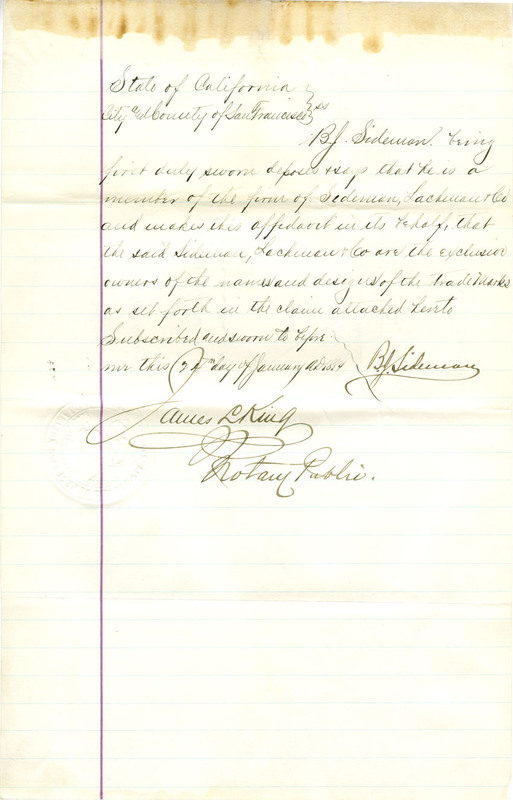 State of California }
City and County of San Francisco } ss
B.J. Sideman being
first duly sworn deposes & says that he is a
member of the firm of Sideman, Lachman & Co
and makes this affidavit in its behalf, that
the said Sideman, Lachman & Co are the exclusive
owners of the names and designs of the trade Marks
as set forth in the claim attached hereto
Subscribed and sworn to before
me this 24th day of January AD 1884
B.J. Sideman
James L King
Notary Public.